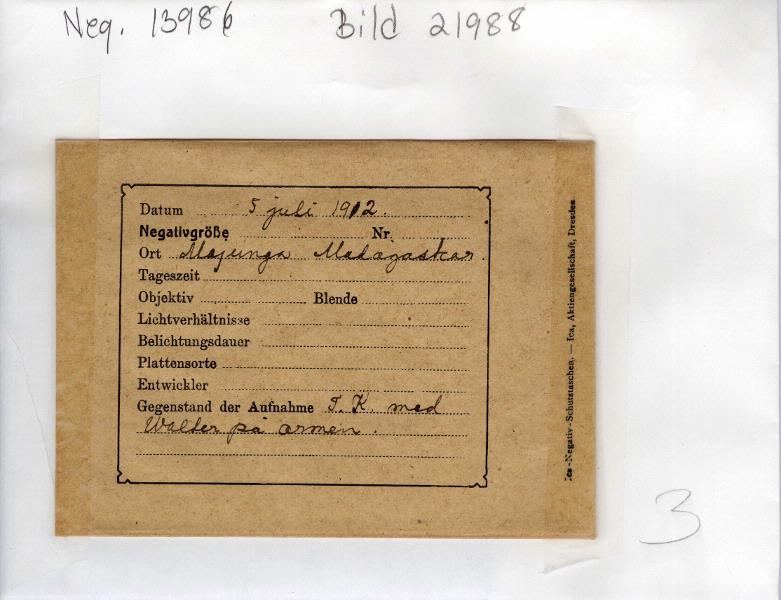 Neg. 13986 Bild 21988
Datum 5 juli 1912.
Negativgröße Nr.
Ort Majunga Madagaskar.
Tageszeit
Objektiv Blende
Lichtverhältnisse
Belichtungsdauer
Plattensorte
Entwickler
Gegenstand der Aufnahme T. K. med
Walter på armen.
Ica-Negativ-Schutztaschen. — Ica, Aktiengesellschaft, Dresden
3